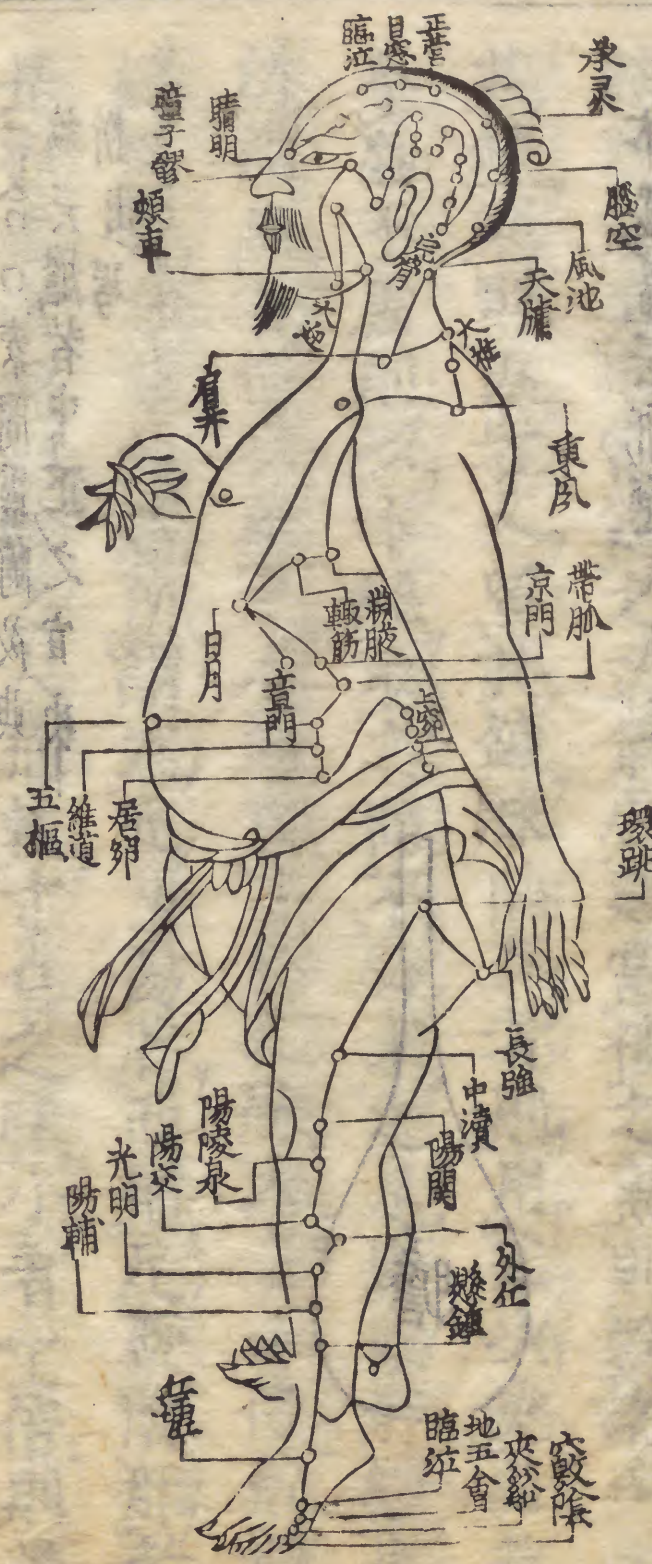 正營
目窓
臨泣
承灵
睛明
瞳子髎
頰車
腦空
風池
天牖
完骨
大椎
肩井
東風
帶脉
京門
淵腋
輙筋
日月
章門
上窌
五樞
維道
居窌
環跳
長強
中瀆
陽関
陽陵泉
陽交
光明
陽輔
外丘
懸鐘
丘墟
臨泣
地五會
俠谿
竅陰